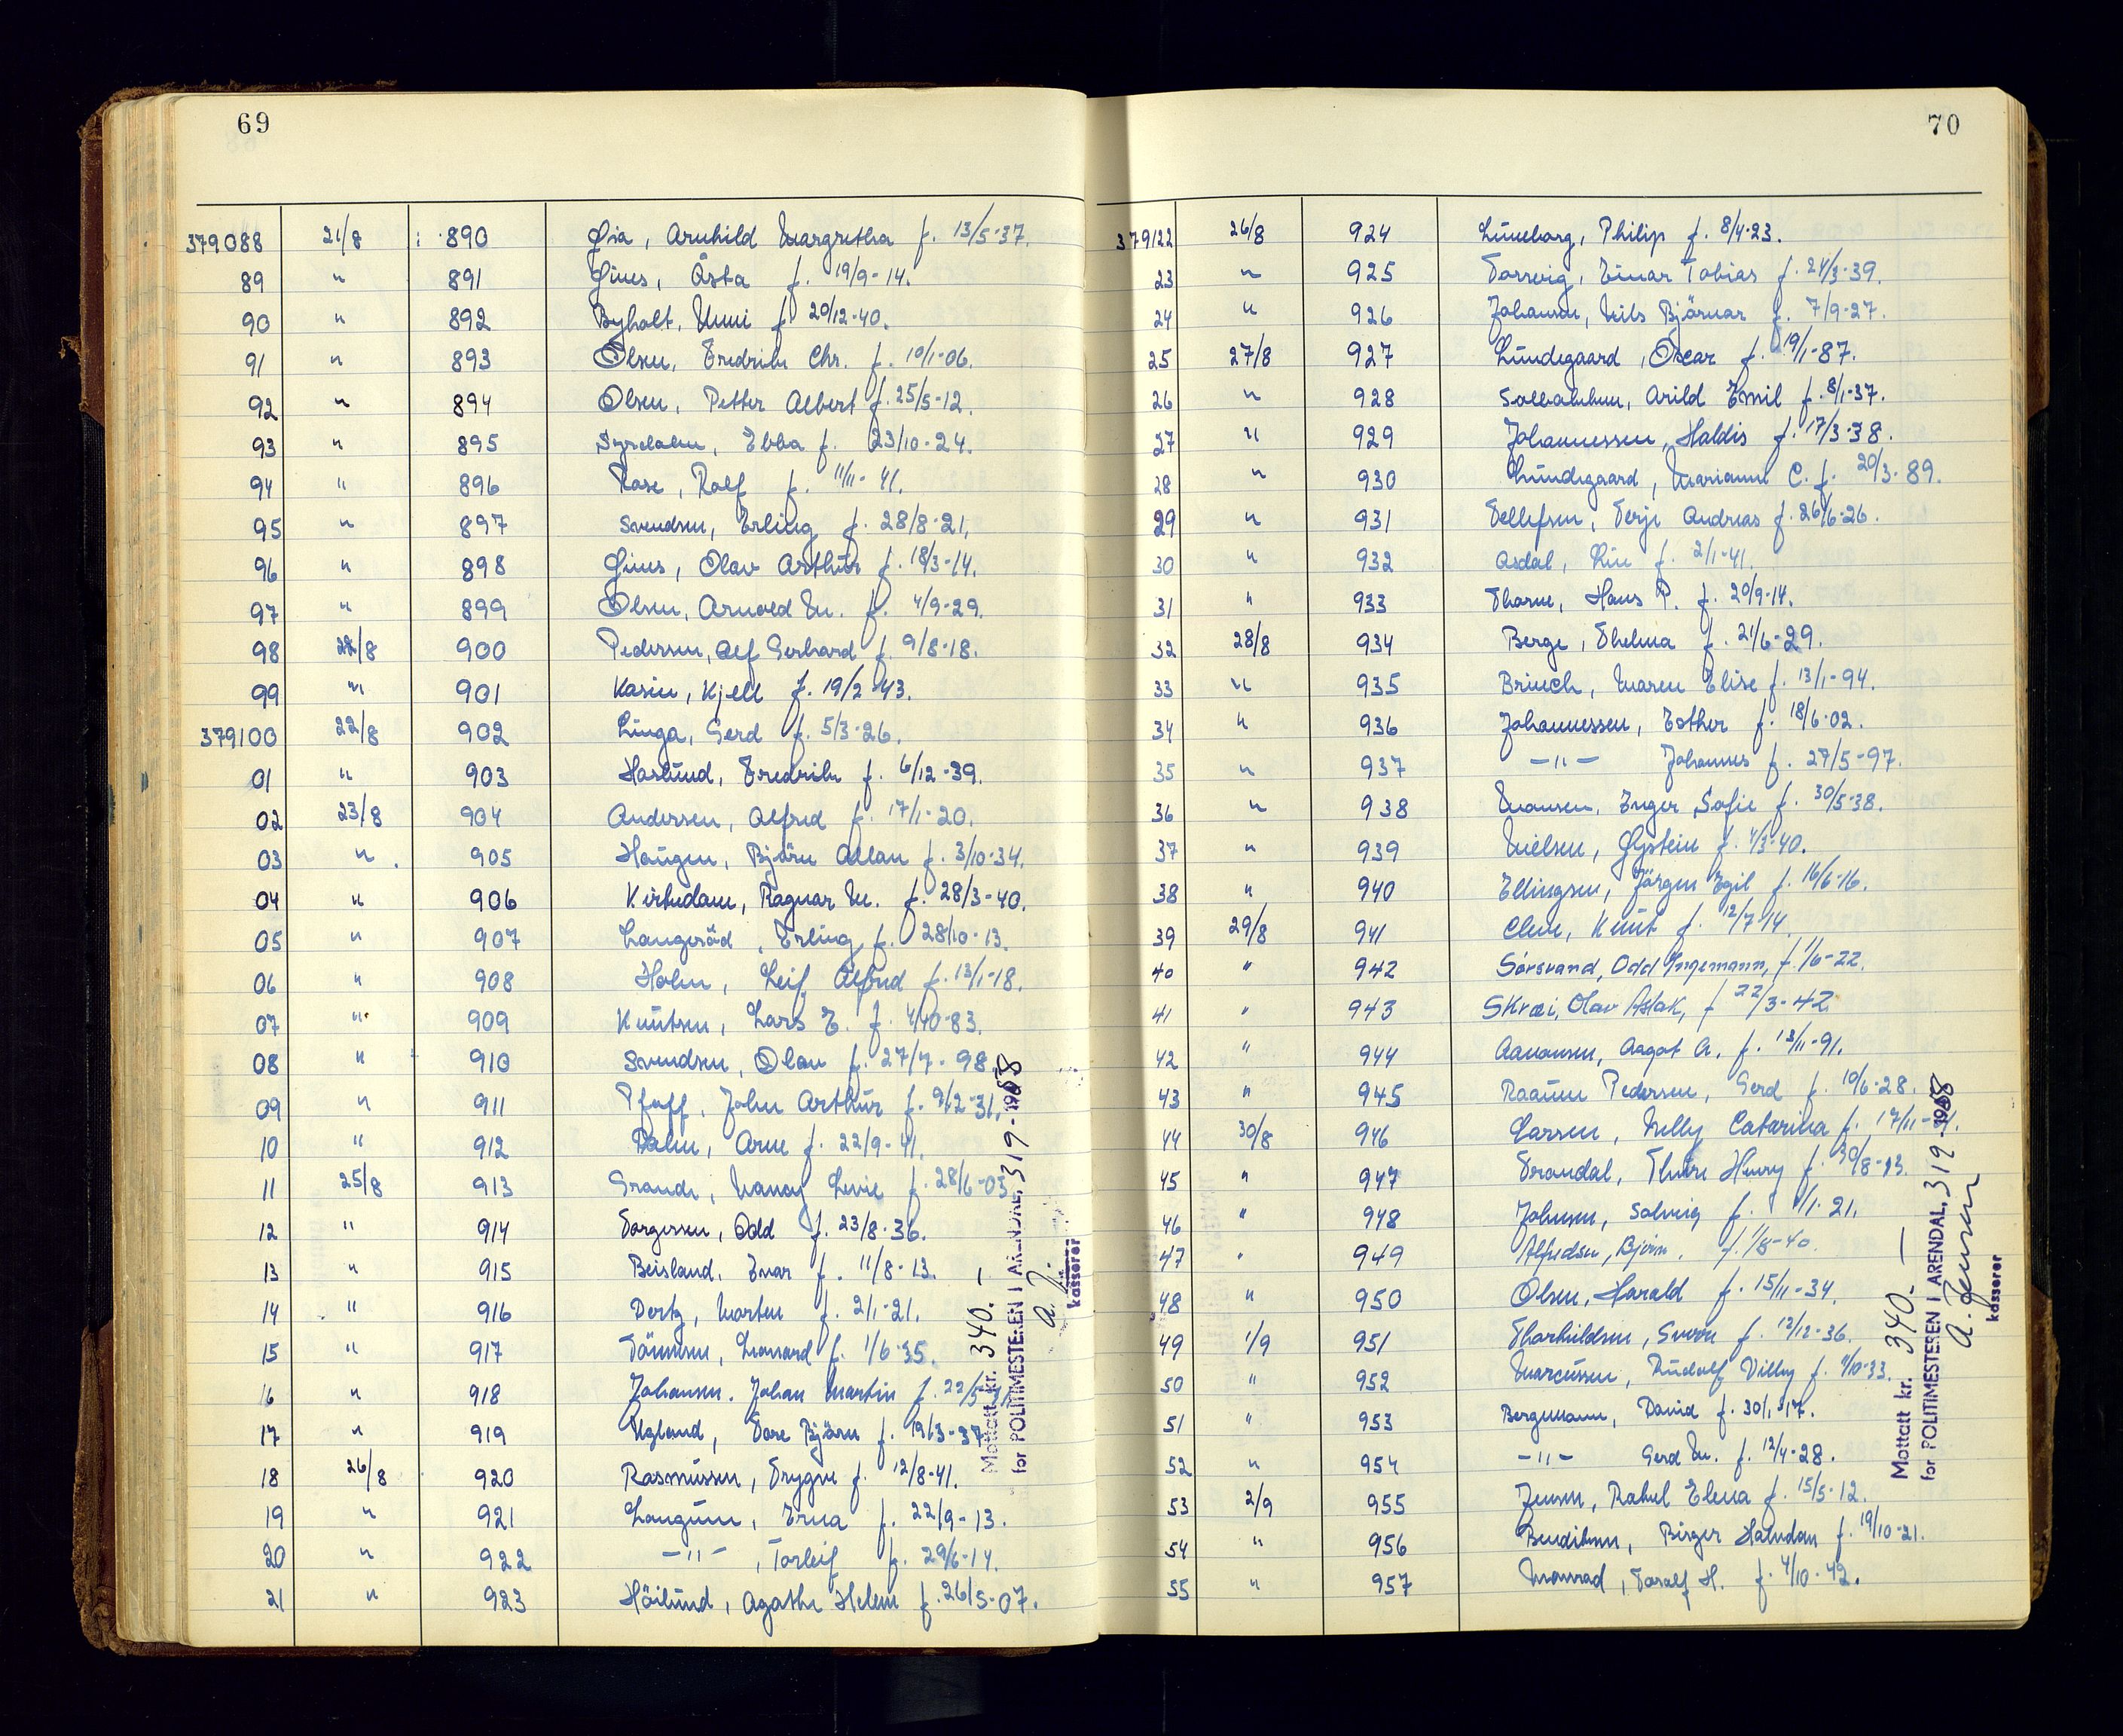 69
379088 21/8 890 Øia, Arnhild Margretha f. 13/5-37.
89 " 891 Gines, Åsta f. 19/9-14.
90 " 892 Byholt, Unni f. 20/12-40.
91 " 893 Olsen, Fredrik Chr. f. 10/1-06.
92 " 894 Olsen, Petter Albert f. 25/5-12.
93 " 895 Ebba f. 23/10-24.
94 " 896 Rase, Rolf f. 11/11-41.
95 " 897 Svendsen, Erling f. 28/8-21.
96 " 898 Gines, Olav Arthur f. 18/3-14.
97 " 899 Olsen, Arnold M. f. 4/9-29.
98 22/8 900 Pedersen, Alf Gerhard f. 9/8-18.
99 " 901 Kasin, Kjell f. 19/2-43.
379100 22/8 902 Linga, Gerd f. 5/3-26.
01 " 903 Haslund, Fredrik f. 6/12-39.
02 23/8 904 Andersen, Alfred f. 17/1-20.
03 " 905 Haugen, Bjørn Allan f. 3/10-34.
04 " 906 Kirkedam, Ragnar M. f. 28/3-40.
05 " 907 Langerød, Erling f. 28/10-13.
06 " 908 Holm, Leif Alfred f. 13/1-18.
07 " 909 Knutsen, Lars E. f. 4/10-83.
08 " 910 Svendsen, Olav f. 27/7-98.
09 " 911 Pfaff, John Arthur f. 9/2-31.
10 " 912 Palm, Arne f. 22/9-41.
11 25/8 913 Grande, Nancy f. 28/6-03.
12 " 914 Torgersen, Odd f. 23/8-36.
13 " 915 Beisland, Ivar f. 11/8-13.
14 " 916 Dertz, Morten f. 2/1-21.
15 " 917 Tønnesen, Leonard f. 1/6-35.
16 " 918 Johansen, Johan Martin f. 22/5
17 " 919 Ugland, Tore Bjørn f. 19/3-37
18 26/8 920 Rasmussen, Trygve f. 12/8-41.
19 " 921 Langum, Erna f. 22/9-13.
20 " 922 -"- , Torleif f. 29/6-14.
21 " 923 Høilund, Agathe Helene f. 26/5-07.
Mottatt kr. 340.-
for POLITIMESTEREN I ARENDAL, 3/9-1958
A. J.
kasserer
70
379122 26/8 924 Luneborg, Philip f. 8/4-23.
23 " 925 Torsvig, Einar Tobias f. 24/3-39.
24 " 926 Johansen, Nils Bjarnar f. 7/9-27.
25 27/8 927 Lundegaard, Oscar f. 19/1-87.
26 " 928 Solbakken, Arild Emil f. 8/1-37.
27 " 929 Johannessen, Haldis f. 17/3-38.
28 " 930 Lundegaard, Marianne C. f. 20/3-89.
29 " 931 Tellefsen, Terje Andreas f. 26/6-26.
30 " 932 Asdal, Liv f. 2/1-41.
31 " 933 Thorne, Hans P. f. 20/9-14.
32 28/8 934 Berge, Thelma f. 21/6-29.
33 " 935 Brinch, Maren Elise f. 13/1-94.
34 " 936 Johannessen, Esther f. 18/6-02.
35 " 937 -"- Johannes f. 27/5-97.
36 " 938 Inger Sofie f. 30/5-38.
37 " 939 Nielsen, Øystein f. 4/3-40.
38 " 940 Ellingsen, Jørgen Egil f. 16/6-16.
39 29/8 941 Cleve, Knut f. 12/7-14.
40 " 942 Sørsvand, Odd Ingemann, f. 1/6-22.
41 " 943 Skrei, Olav Aslak, f 22/3-42
42 " 944 Aanonsen, Aagot A. f. 13/11-91.
43 " 945 Raaum Pedersen, Gerd f. 10/6-28.
44 30/8 946 Larsen, Nelly Catarina f. 17/11-
45 " 947 Trondal, Thure Henry f. 30/8-
46 " 948 Johnsen, Solveig f. 1/1-21.
47 " 949 Alfredsen, Bjørn. f. 1/8-40.
48 " 950 Olsen, Harald f. 15/11-34.
49 1/9 951 Thorkildsen, Sverre f. 12/12-36.
50 " 952 Marcussen, Rudolf Villy f. 4/10-33.
51 " 953 Bergmann, David f. 30/1-17.
52 " 954 -"- Gerd M. f. 12/4-28.
53 2/9 955 Jensen, Rakel Elena f. 15/5-12.
54 " 956 Bendiksen, Birger Halvdan f. 19/10-21.
55 " 957 Monrad, Toralf H. f. 4/10-42.
Mottatt kr. 340.-
for POLITIMESTEREN I ARENDAL, 3/9-1958
A. Jensen
kasserer